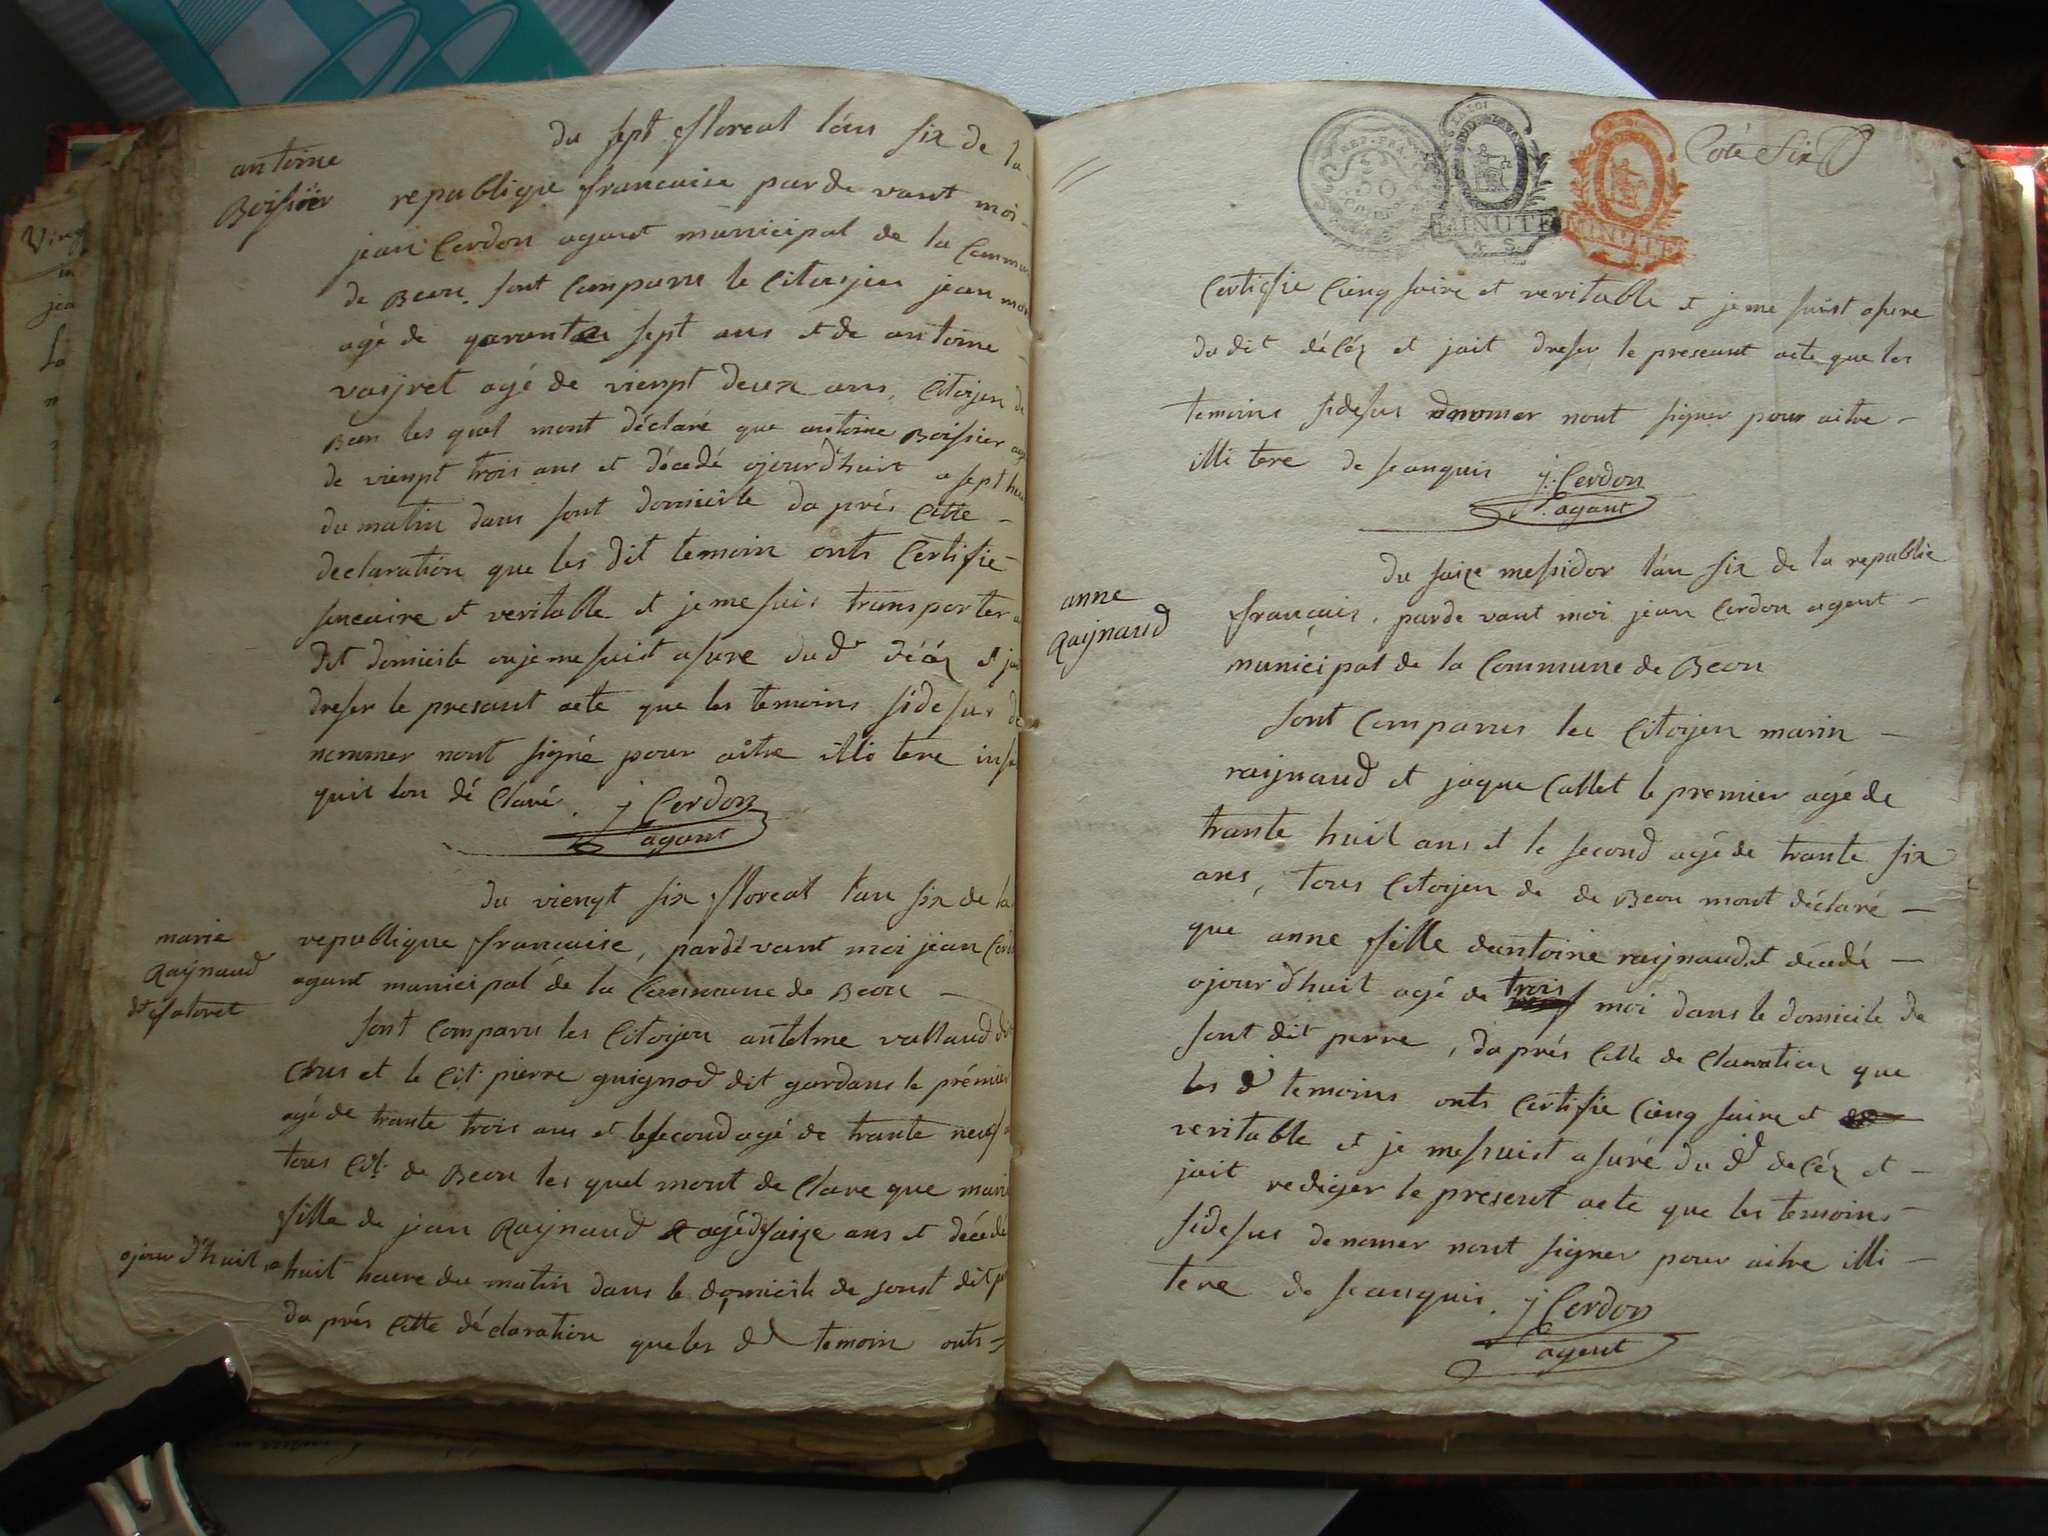 antoine
Boissier
du sept floreal l'ans six de la
republique francaise par de vant moi
jean Cerdon agant municipal de la Commu
de Beon. sont Comparu le Citoyien jean
agé de qarantee sept ans et de antoine
vayret agé de vienpt deux ans, Citoyen de
Beon les quel mont déclaré que antoine Boissier agé
de vienpt trois ans et décedé ojourd'huit a sept heu
du matin dans sont domicile da prés Cette
declaration que les dit temoin onts Certifie
sincaire et veritable et je me suis transporter a
dit domicile ou je me suist asure du dt décéz et jai
dreser le presant acte que les temoins sidesus de
nommer nont signé pour aitre illi tere insi
quil lon dé Claré. j Cerdon
agant
marie
Raynaud
dt falovet
du viengt six floreal l'an six de la
republique francaise, pardévant moi jean Cerd
agant municipal de la Commune de Beon
sont Comparu les Citoyen antelme vallaud dit
Chus et le Cit. pierre guignod dit gardans le prémier
agé de trante trois ans et le second agé de trante neuf
tous Cit. de Beon les quel mont de Clare que marie
fille de jean Raynaud agé de saize ans et décédé
ojour d'huit, a huit heure du matin dans le domicile de sont dit
da prés Cette déclaration que les dt temoin onts
MINUTE
MINUTE
Coté Six
Certifie Cienq saire et veritable et je me suist asure
du dit décéz et jait dreser le preseant acte que les
temoins sidesus dnomer nont signer pour aitre
illi tere de seanquis j. Cerdon
agant
anne
Raynaud
du saize messidor l'an six de la republie
français, parde vant moi jean Cerdon agent
municipal de la Commune de Beon
sont Comparus les Citoyen marin
raynaud et jaque Callet le premier agé de
trante huit ans et le second agé de trante six
ans, tous Citoyen de de Beon mont déclaré
que anne fille dantoine raynaud et décédé
ojourd'huit agé de trois moi dans le domicile de
sont dit perre, da prés Cette de Claration que
les dt temoins onts Certifie Cienq saire et
veritable et je me suist asuré du dt decéz et
jait rediger le present acte que les temoins
sidesus denomer nont signer pour aitre illi
tere de seanquis. j Cerdon
agent